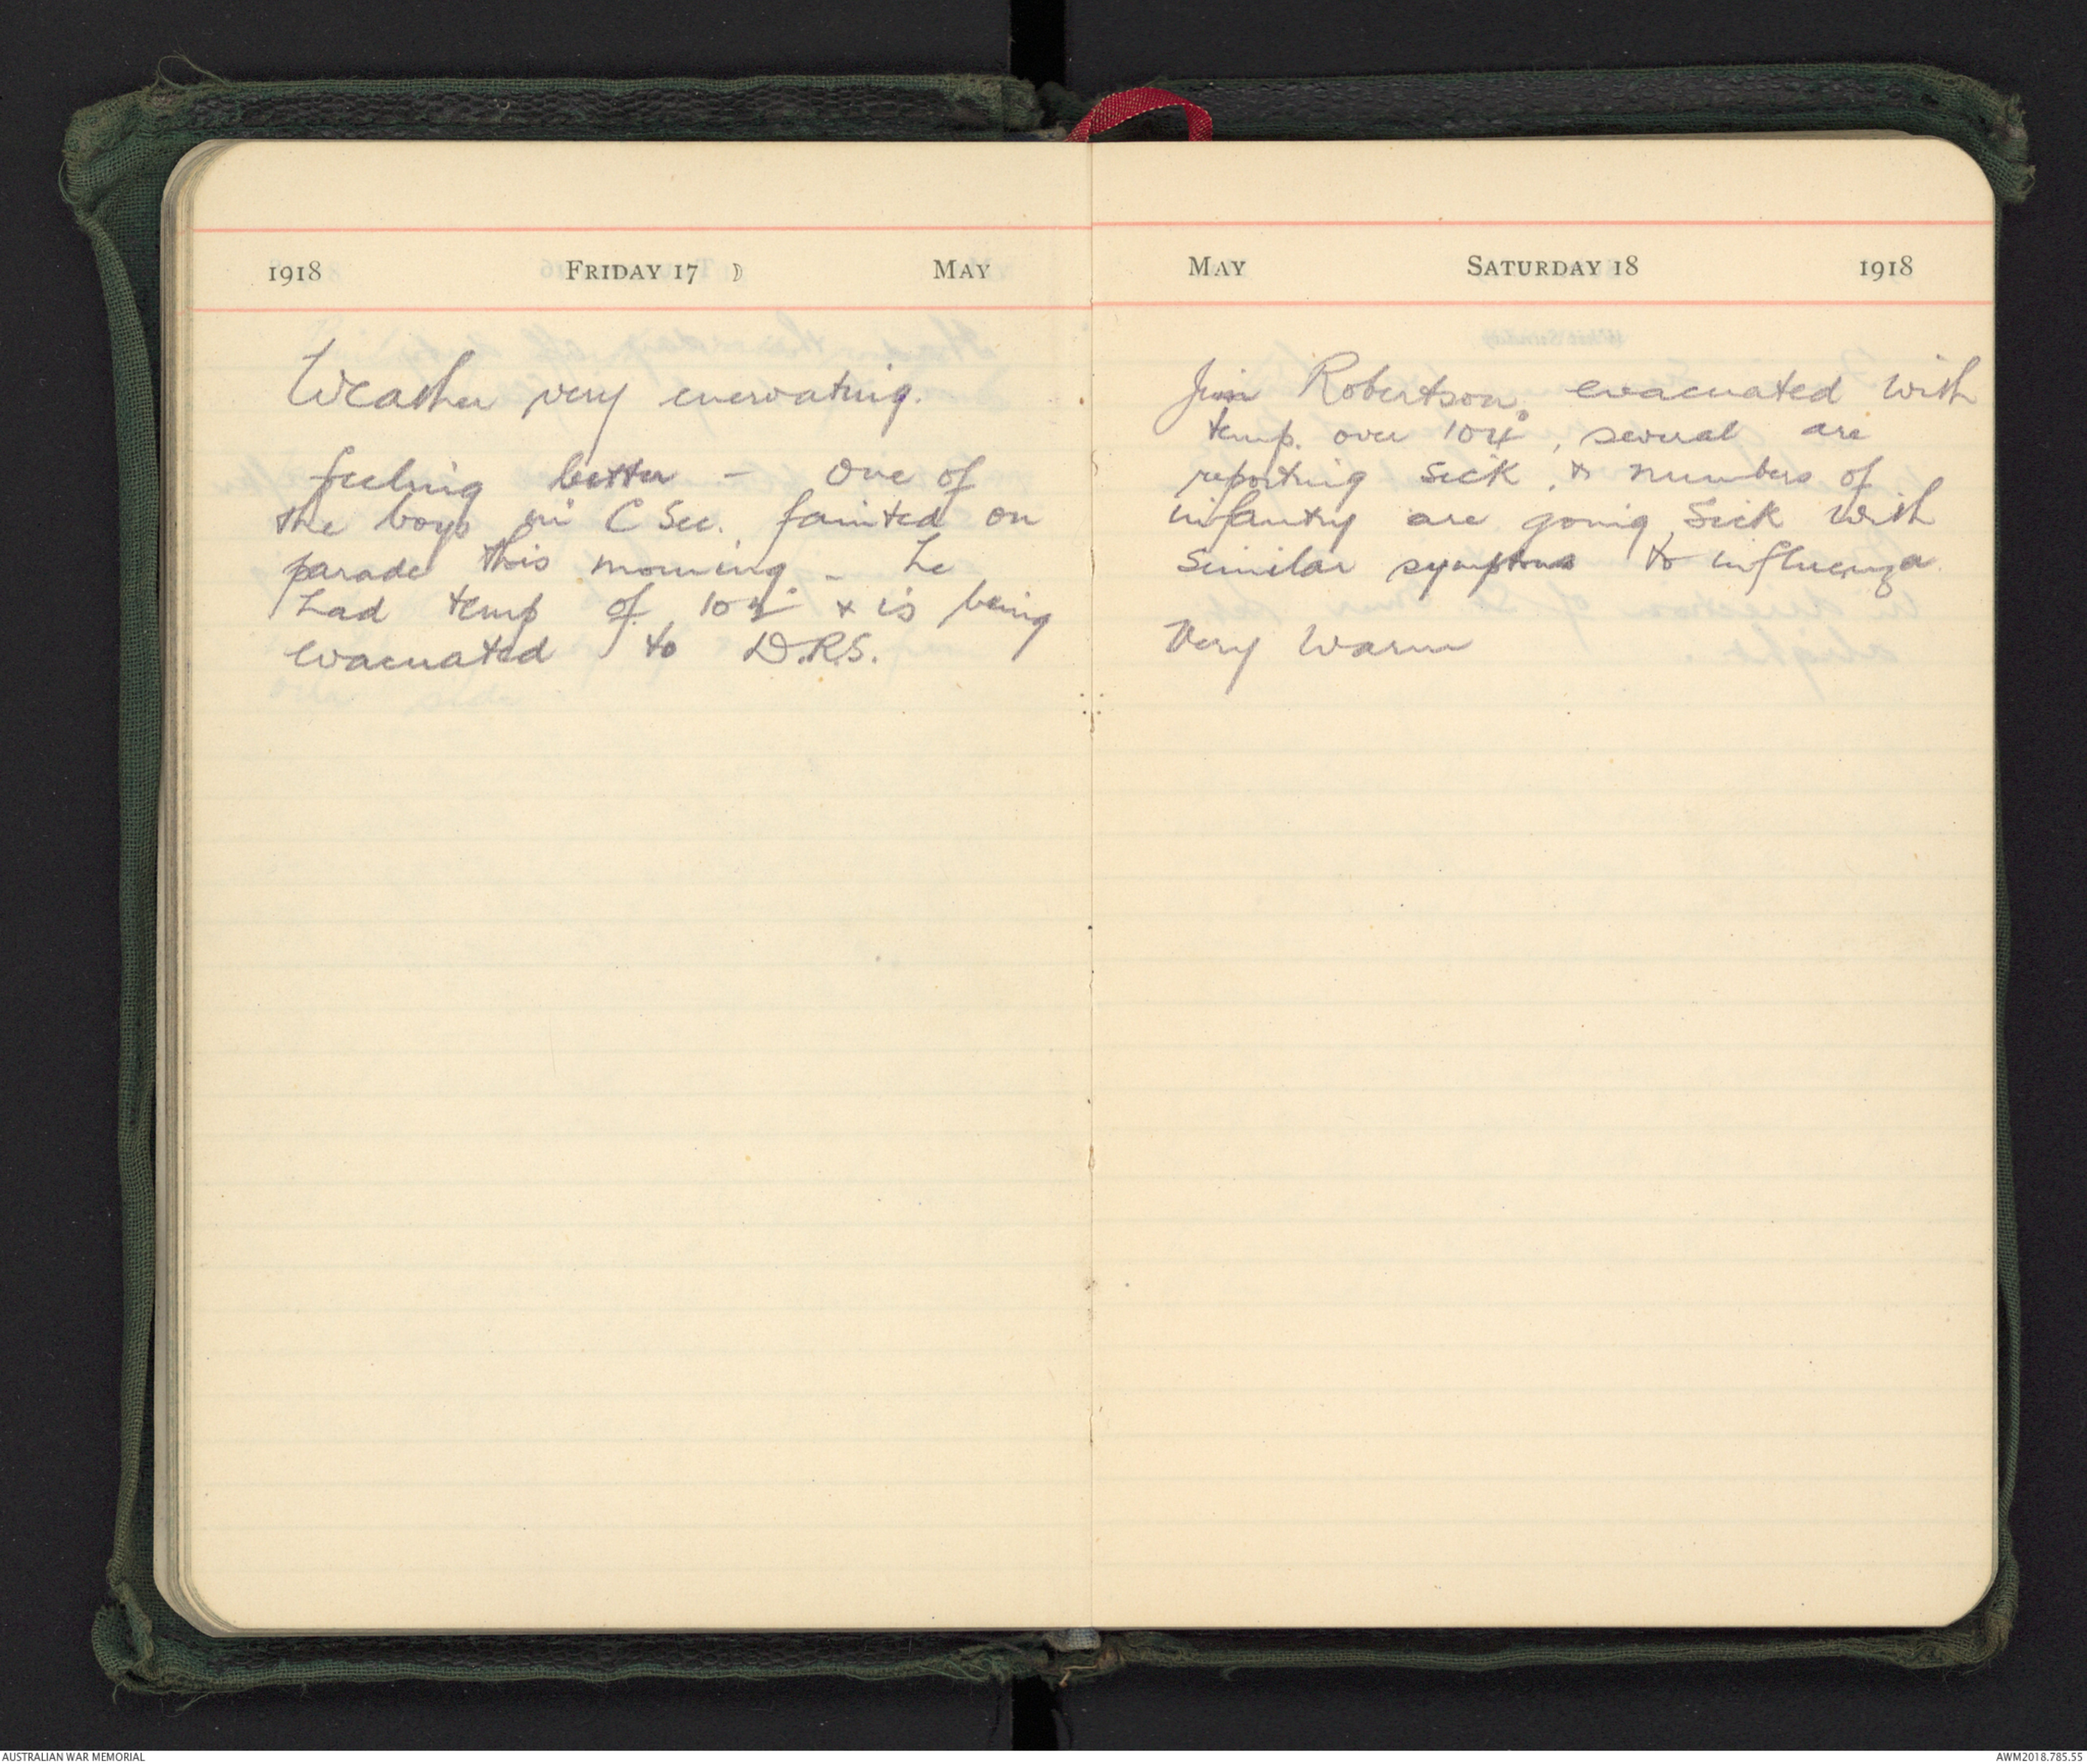 1918 FRIDAY 17 ☽ MAY
Weather very enervating.
feeling better - One of
the boys in C Sec. fainted on
parade this morning - he
had temp of 102° & is being
evacuated to D.R.S.
MAY SATURDAY 18 1918
Jim Robertson evacuated with
temp. over 104°, several are
reporting sick, & numbers of
infantry are going sick with
similar symptoms to influenza.
Very Warm
AUSTRALIAN WAR MEMORIAL
AWM2018.785.55